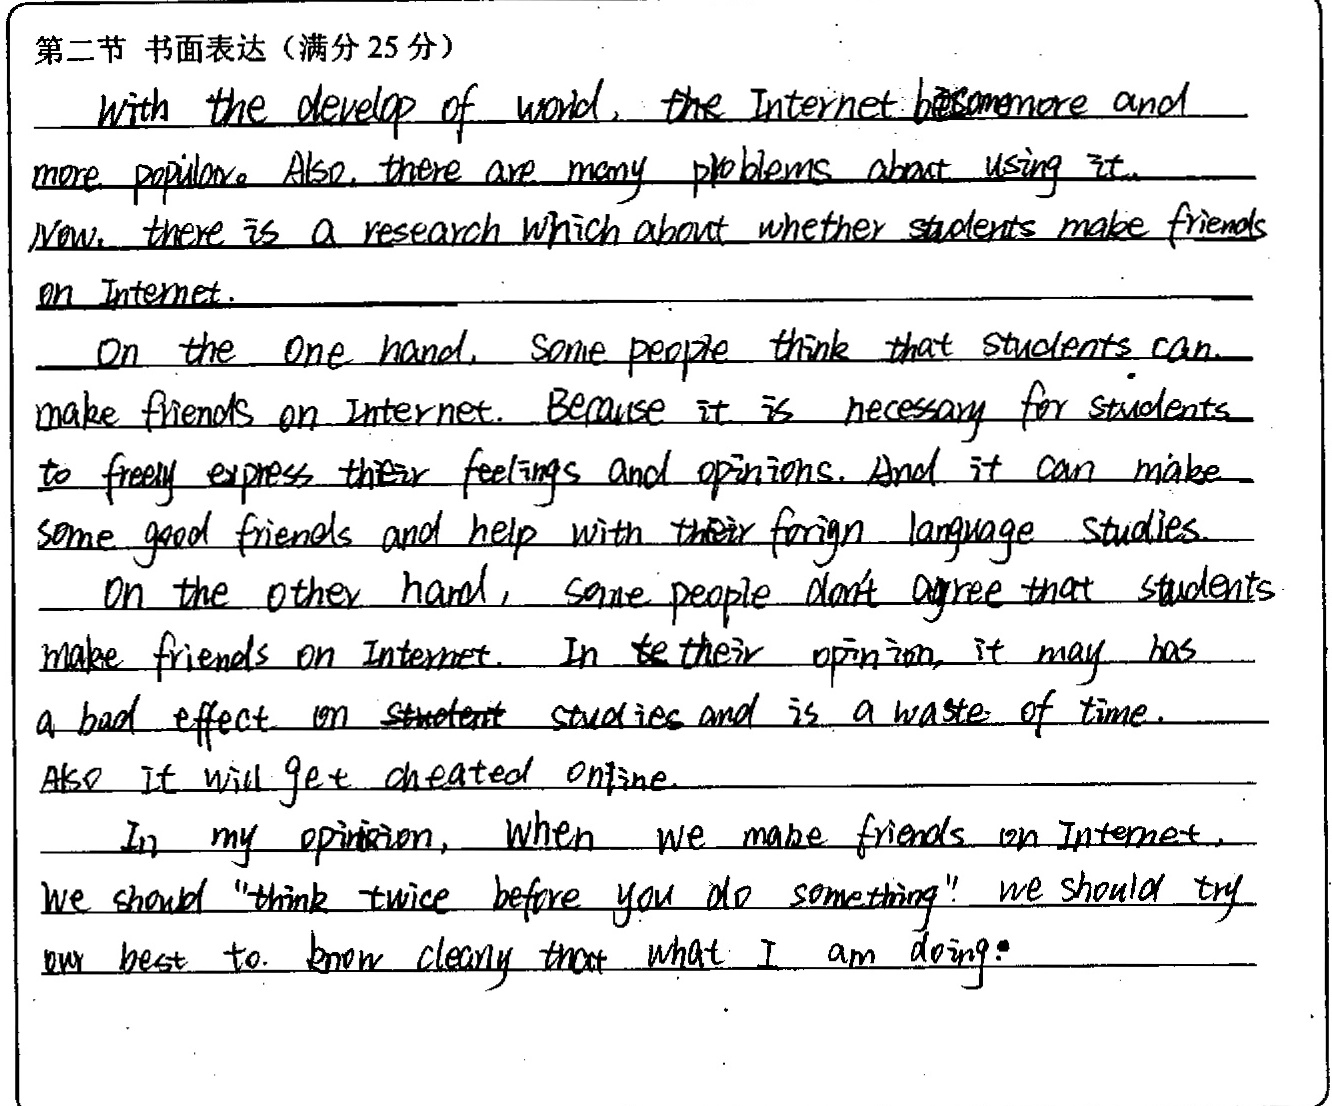 第二节 书面表达（满分 25 分）
With the develop of world, the Internet become more and
more popular. Also, there are many problems about using it.
Now, there is a research which about whether students make friends
on Internet.
On the one hand, some people think that students can
make friends on Internet. Because it is necessary for students
to freely express their feelings and opinions. And it can make
some good friends and help with their forign language studies.
On the other hand, some people don't agree that students
make friends on Internet. In their opinion, it may has
a bad effect on studies and is a waste of time.
Also it will get cheated online.
In my opinion, when we make friends on Internet,
we should "think twice before you do something". we should try
our best to know clearly that what I am doing.